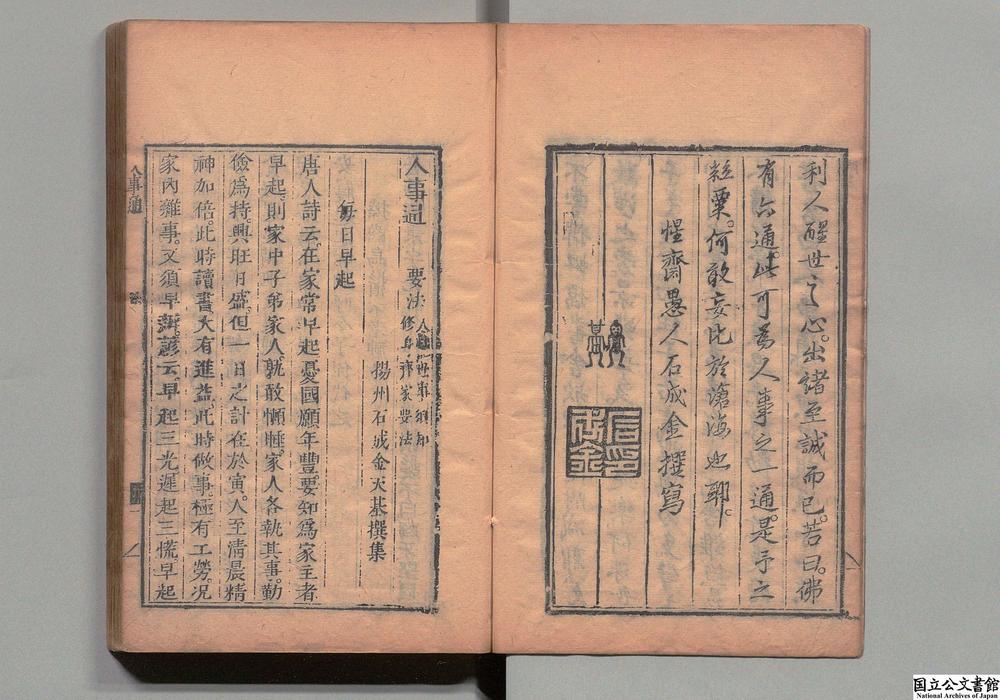 利人醒世之心。出諸至誠而已。若曰。佛
有六通。此可為人事之一通。是予之
粒粟。何敢妄比於滄海也耶。
惺齋愚人石成金撰寫
天基
石成金印
人事通
要法
人生世事須知
修身齊家要法
揚州石成金天基撰集
每日早起
唐人詩云。在家常早起。憂國願年豐。要知為家主者
早起。則家中子弟家人。孰敢懶睡。家人各執其事。勤
儉為持。興旺日盛。但一日之計在於寅。人至清晨精
神加倍。此時讀書。大有進益。此時做事。極有工勞。況
家內雜事。又須早辦。諺云。早起三光。遲起三慌。早起
人事通
国立公文書館
National Archives of Japan